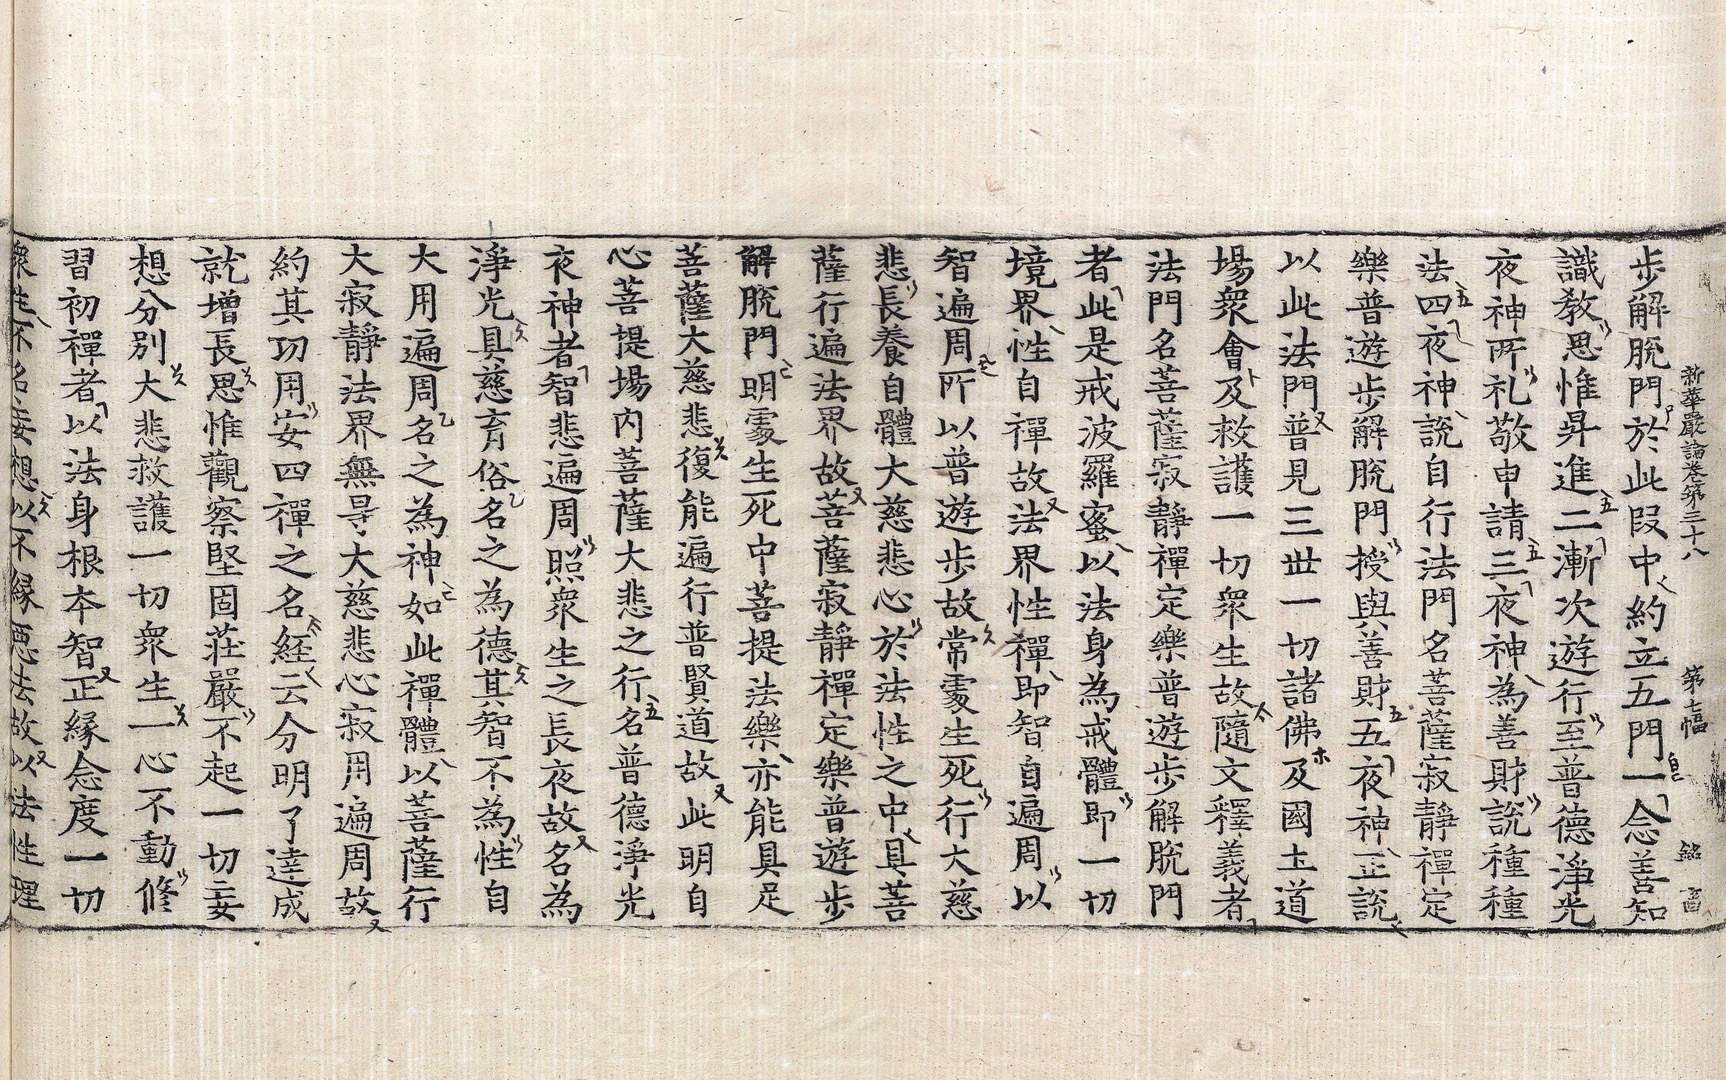 新華嚴論卷第三十八 第七幅 銘
步解脫門於此叚中約立五門一念善知
識教思惟昇進二漸次遊行至普德淨光
夜神所礼敬申請三夜神為善財說種種
法四夜神說自行法門名菩薩寂靜禪定
樂普遊步解脫門授與善財五夜神正說
以此法門普見三世一切諸佛及國土道
場衆會及救護一切衆生故隨文釋義者
法門名菩薩寂靜禪定樂普遊步解脫門
者此是戒波羅蜜以法身為戒體即一切
境界性自禪故法界性禪即智自遍周以
智遍周所以普遊步故常䖏生死行大慈
悲長養自體大慈悲心於法性之中具菩
薩行遍法界故菩薩寂靜禪定樂普遊步
解脫門明䖏生死中菩提法樂亦能具足
菩薩大慈悲復能遍行普賢道故此明自
心菩提場内菩薩大悲之行名普德淨光
夜神者智悲遍周照衆生之長夜故名為
淨光具慈育俗名之為德其智不為性自
大用遍周名之為神如此禪體以菩薩行
大寂靜法界無㝵大慈悲心寂用遍周故
約其功用安四禪之名経云分明了達成
就增長思惟觀察堅固莊嚴不起一切妄
想分別大悲救護一切衆生一心不動修
習初禪者以法身根本智正緣念度一切
衆生不名妄想以不緣惡法故以法性理